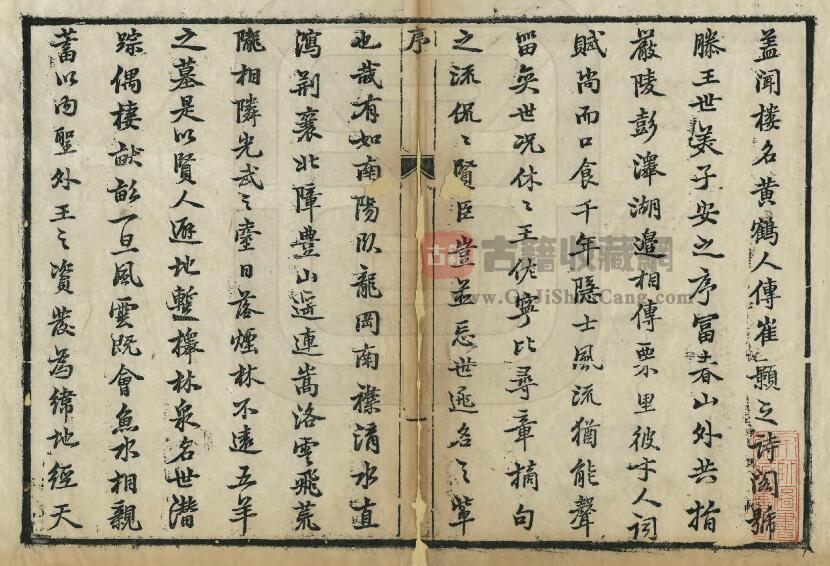 蓋聞樓名黄鶴人傳崔顥之詩閣號
滕王世美子安之序富春山外共指
嚴陵彭澤湖邊相傳栗里彼乎人詞
賦尚而口食千年隱士風流猶能聲
留奕世况休〻王佐寧比尋章摘句
之流侃〻賢臣豈並忘世逃名之輩
序
一
也哉有如南陽臥龍岡南襟淯水直
瀉荆襄北障豊山遥連嵩洛雲飛荒
隴相隣光武之臺日落煙林不遠五羊
之墓是以賢人避地暫擇林泉名世潛
踪偶棲畎畝一旦風雲既會魚水相親
蓄以内聖外王之資發為緯地經天
古籍
古籍收藏網
www.GuJiShouCang.com